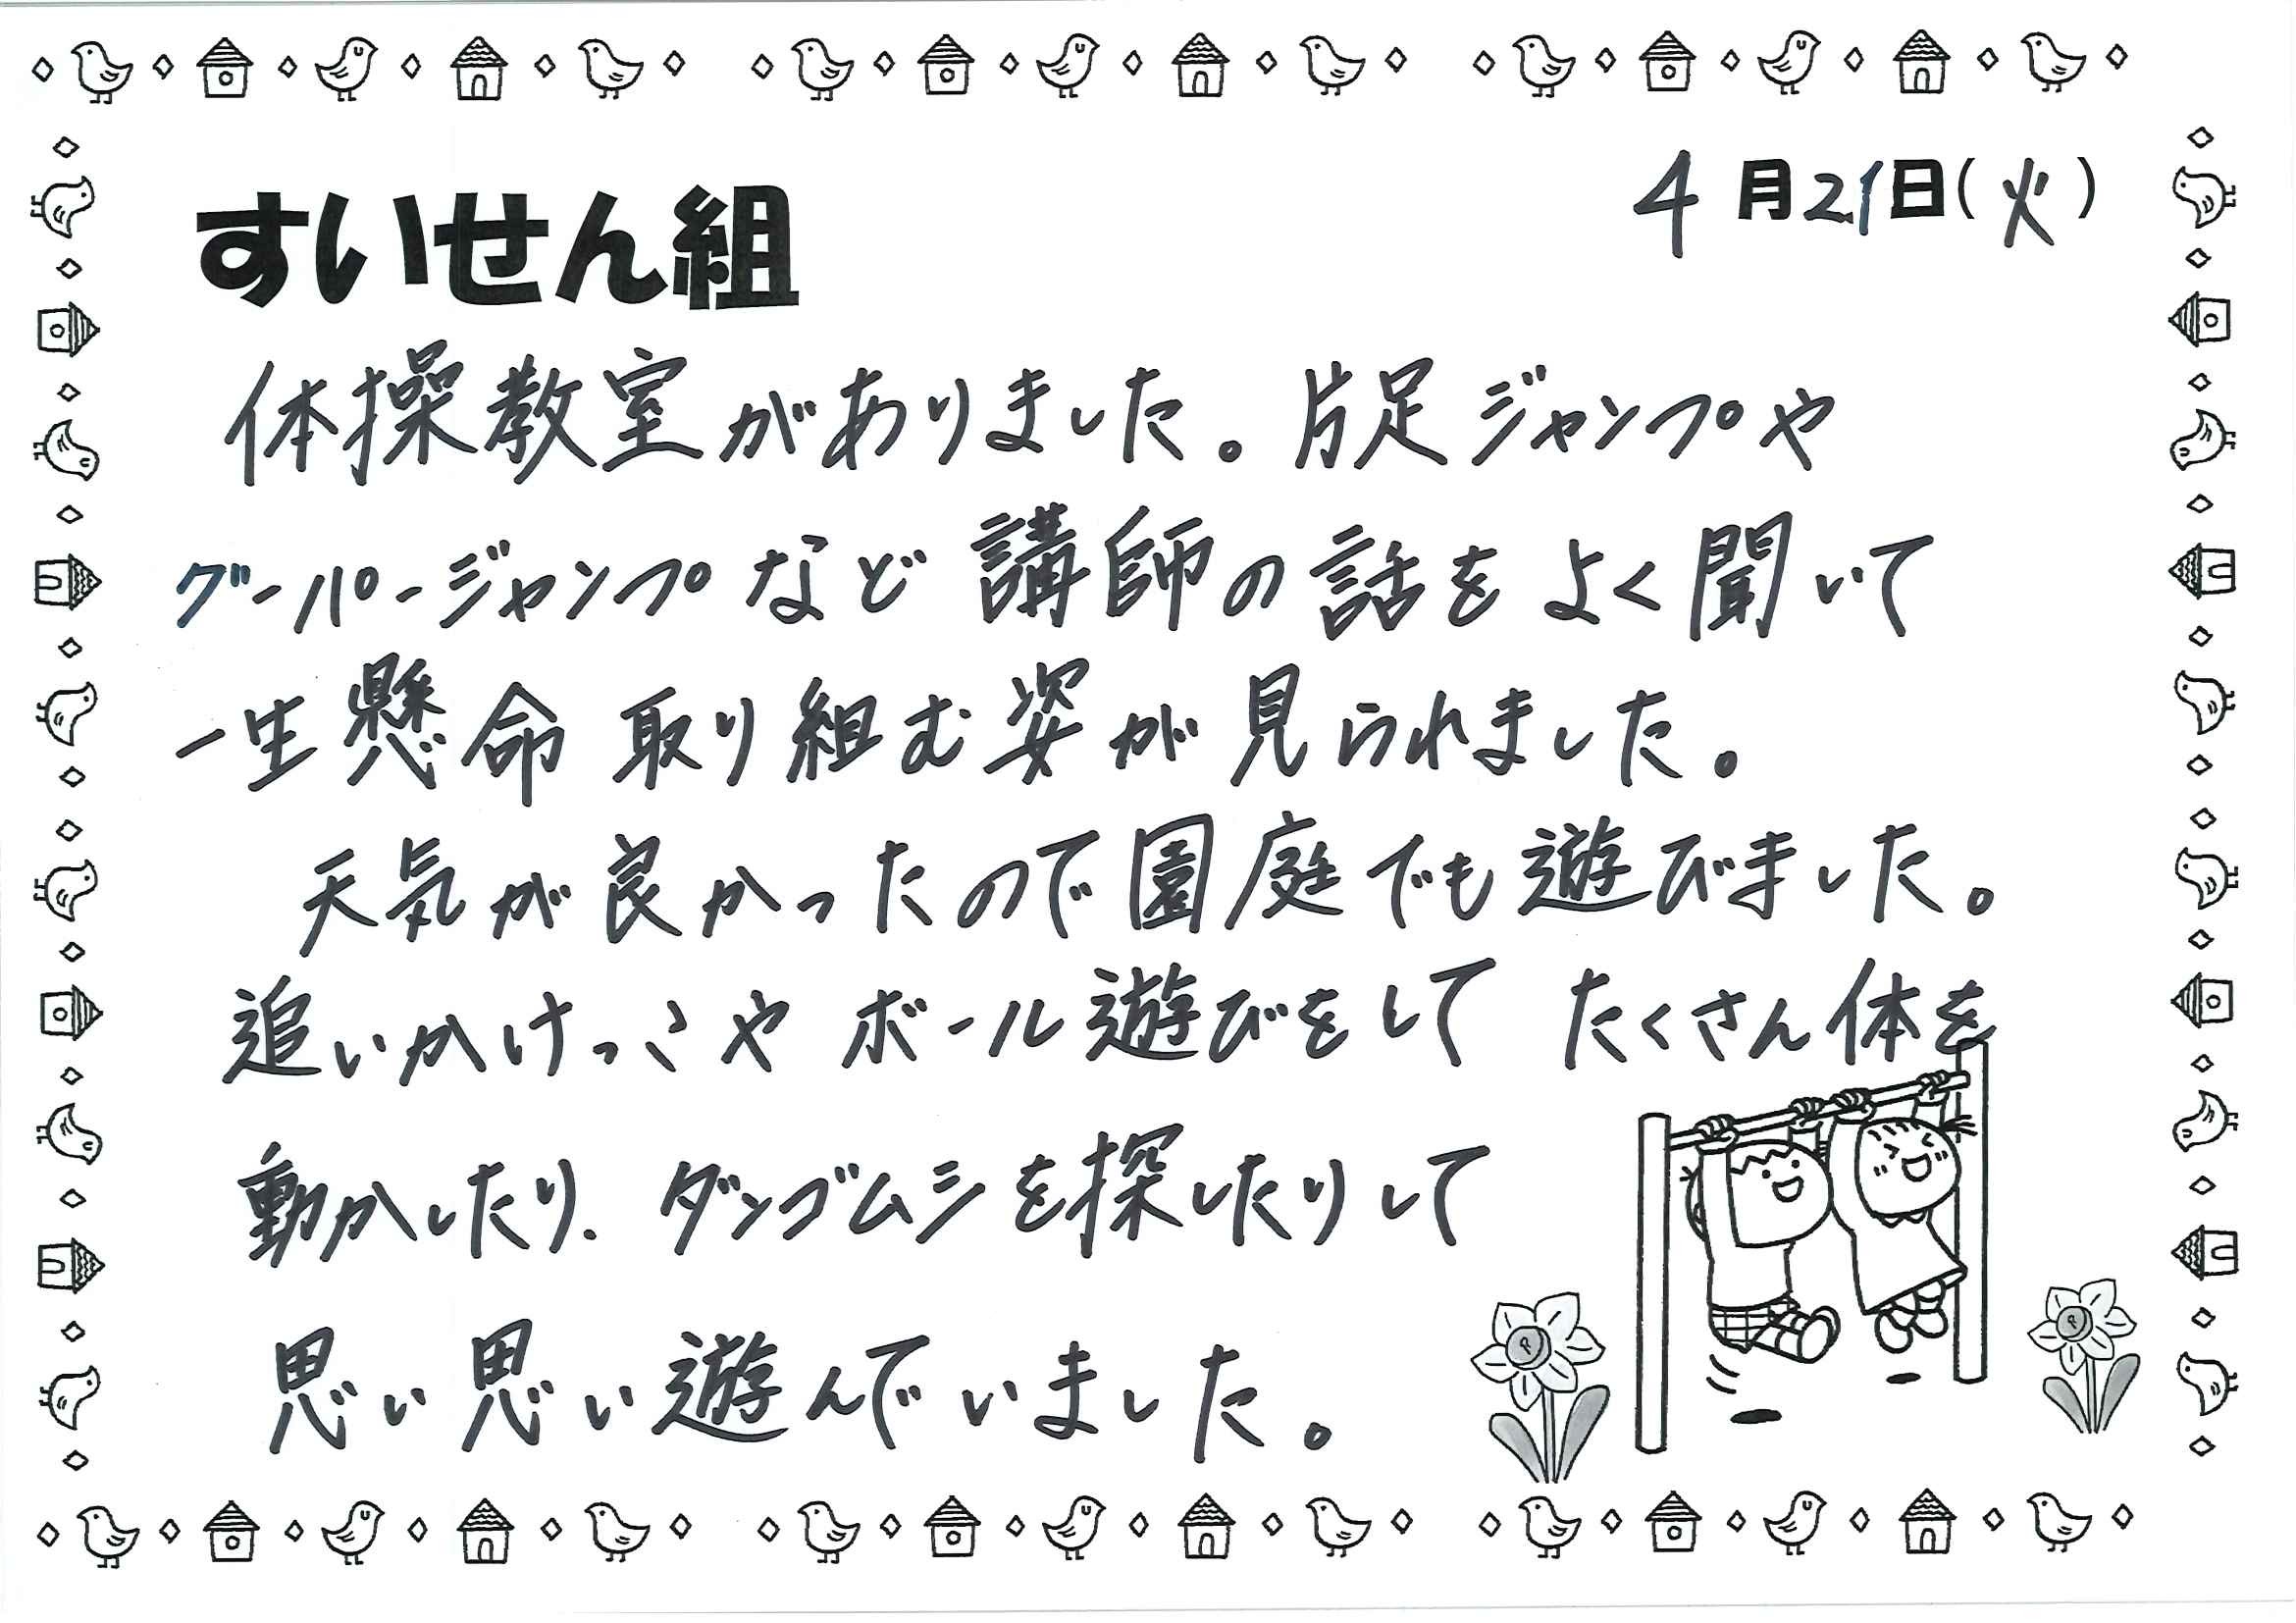 すいせん組
4月21日(火)
体操教室がありました。片足ジャンプや
グーパージャンプなど講師の話をよく聞いて
一生懸命取り組む姿が見られました。
天気が良かったので園庭でも遊びました。
追いかけっこやボール遊びをしてたくさん体を
動かしたり、ダンゴムシを探したりして
思い思い遊んでいました。